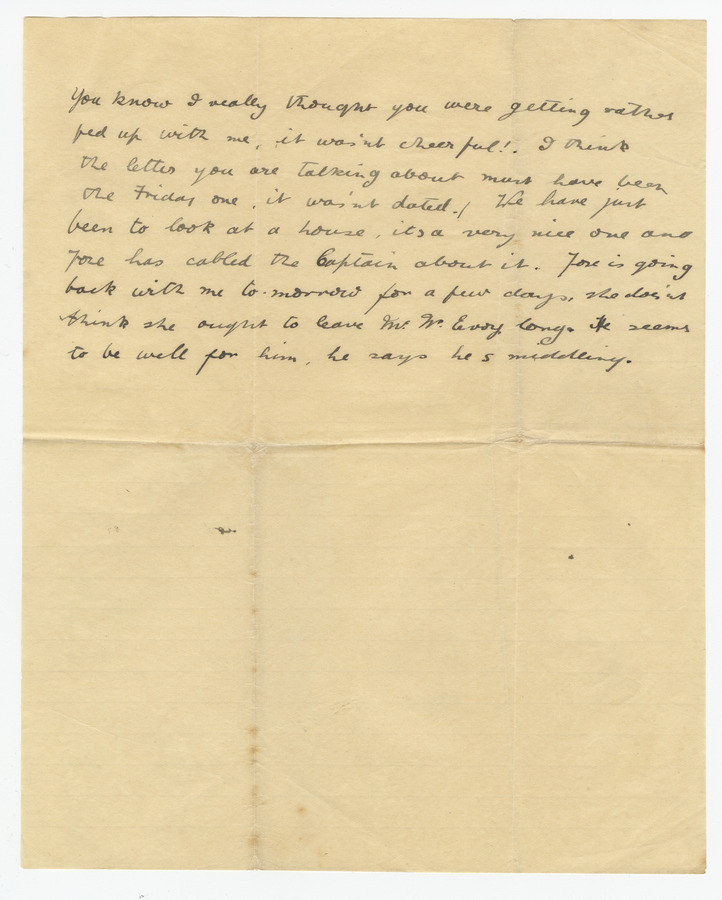 You know I really thought you were getting rather
fed up with me, it was'nt cheerful!. I think
the letter you are talking about must have been
the Friday one, it was'nt dated./ We have just
been to look at a house, its a very nice one and
has cabled the Captain about it. is going
back with me to-morrow for a few days, she does'nt
think she ought to leave Mr. Mc Evoy long. He seems
to be well for him, he says he s middling.